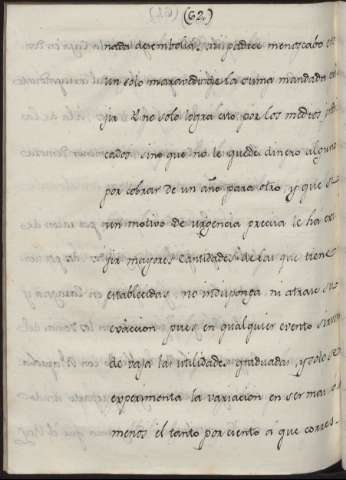 (62.)
nada desembolsa, ni padece menoscabo en
un solo maravedi de la suma mandada exi
jir. Y no solo logra esto por los medios
cados sino que no le quede dinero alguno
por cobrar de un año para otro, y que si
un motivo de urgencia precisa le ha exi
jir mayores cantidades de las que tiene
establecidas no indisponga ni atrase su
exâccion pues en qualquier evento sirven
de vaja las utilidades graduadas, y solo se
experimenta la variacion en ser mas o
menos el tanto por ciento a que corres-